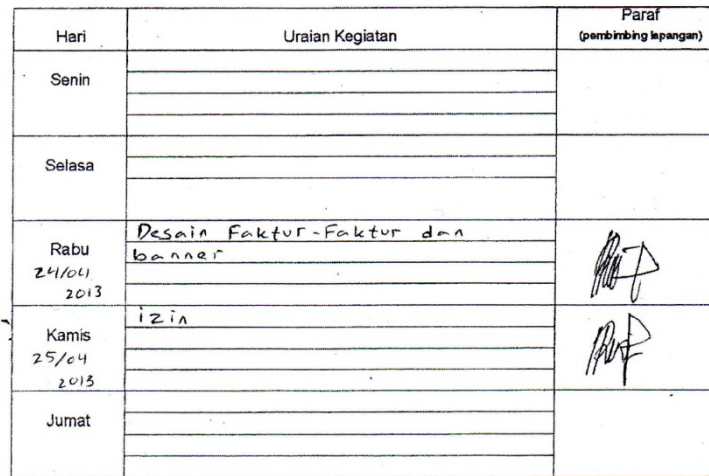 Hari Uraian Kegiatan Paraf
(pembimbing lapangan)
Senin
Selasa
Rabu
24/04
2013
Desain Faktur-Faktur dan
banner
Kamis
25/04
2013
izin
Jumat